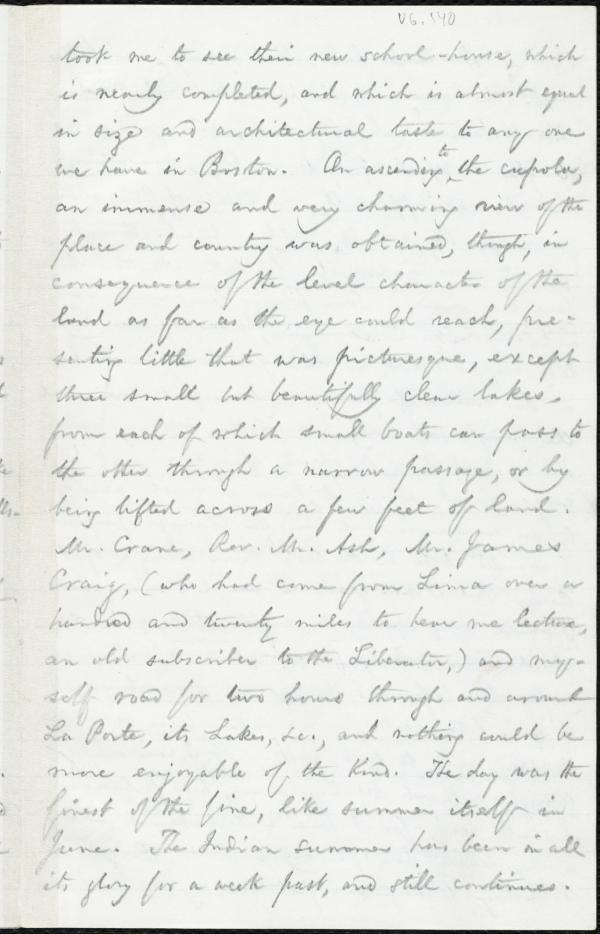 V6. 140
took me to see their new school-house, which
is nearly completed, and which is almost equal
in size and architectural taste to any one
we have in Boston. On ascending to the cupola,
an immense and very charming view of the
place and country was obtained, though, in
consequence of the level character of the
land as far as the eye could reach, pre-
senting little that was picturesque, except
three small but beautifully clear lakes,
from each of which small boats can pass to
the other through a narrow passage, or by
being lifted across a few feet of land.
Mr. Crane, Rev. Mr. Ash, Mr. James
Craig, (who had come from Lima over a
hundred and twenty miles to hear me lecture,
an old subscriber to the Liberator,) and my-
self road for two hours through and around
La Porte, its Lakes, &c., and nothing could be
more enjoyable of the kind. The day was the
finest of the fine, like summer itself in
June. The Indian summer has been in all
its glory for a week past, and still continues.